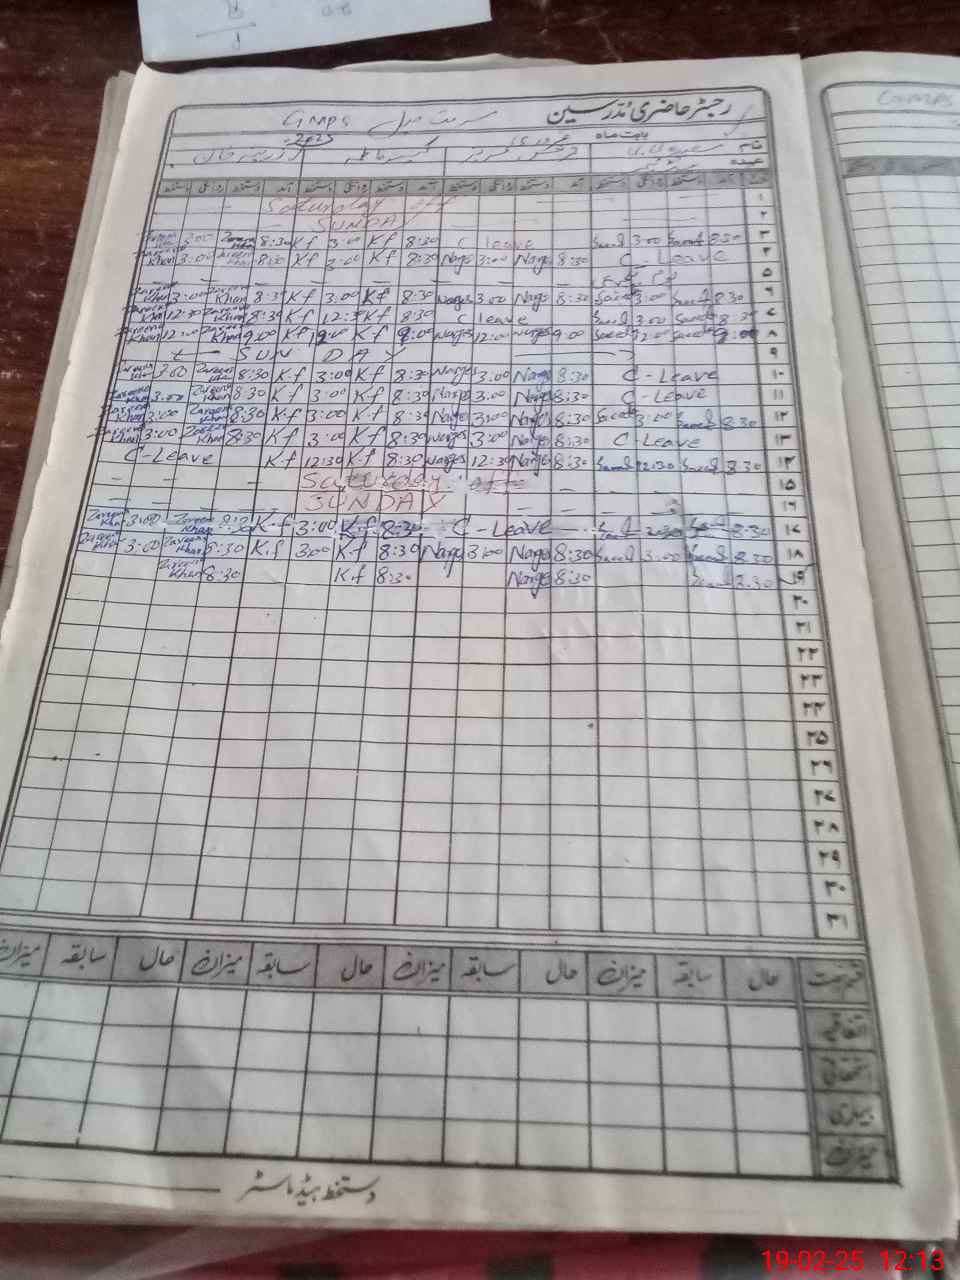 رجسٹر حاضری مدرسین GMPS
بابت ماہ 2025
نام
عہدہ
دستخط روانگی دستخط آمد دستخط روانگی دستخط آمد دستخط روانگی دستخط آمد دستخط روانگی دستخط آمد
۱ Saturday off
۲ SUNDAY
۳ Zareen Khan 3:00 Zareen Khan 8:30 K.f 3:00 K.f 8:30 C leave Saeed 3:00 Saeed 8:30
۴ Zareen Khan 3:00 Zareen Khan 8:30 K.f 3:00 K.f 8:30 Nargs 3:00 Nargs 8:30 C-Leave
۵
۶ Zareen Khan 3:00 Zareen Khan 8:30 K.f 3:00 K.f 8:30 Nargs 3:00 Nargs 8:30 Saeed 3:00 Saeed 8:30
۷ Zareen Khan 12:30 Zareen Khan 8:30 K.f 12:30 K.f 8:30 C leave Saeed 3:00 Saeed 8:30
۸ Zareen Khan 12:00 Zareen Khan 9:00 K.f 12:00 K.f 9:00 Nargs 12:00 Nargs 9:00 Saeed 12:00 Saeed 9:00
۹ SUNDAY
۱۰ Zareen Khan 3:00 Zareen Khan 8:30 K.f 3:00 K.f 8:30 Nargs 3:00 Nargs 8:30 C-Leave
۱۱ Zareen Khan 3:00 Zareen Khan 8:30 K.f 3:00 K.f 8:30 Nargs 3:00 Nargs 8:30 C-Leave
۱۲ Zareen Khan 3:00 Zareen Khan 8:30 K.f 3:00 K.f 8:30 Nargs 3:00 Nargs 8:30 Saeed 3:00 Saeed 8:30
۱۳ Zareen Khan 3:00 Zareen Khan 8:30 K.f 3:00 K.f 8:30 Nargs 3:00 Nargs 8:30 C-Leave
۱۴ C-Leave K.f 12:30 K.f 8:30 Nargs 12:30 Nargs 8:30 Saeed 12:30 Saeed 8:30
۱۵ Saturday off
۱۶ SUNDAY
۱۷ Zareen Khan 3:00 Zareen Khan 8:30 K.f 3:00 K.f 8:30 C-Leave Saeed 2:30 Saeed 8:30
۱۸ Zareen Khan 3:00 Zareen Khan 8:30 K.f 3:00 K.f 8:30 Nargs 3:00 Nargs 8:30 Saeed 3:00 Saeed 8:30
۱۹ Zareen Khan 8:30 K.f 8:30 Nargs 8:30 Saeed 8:30
۲۰
۲۱
۲۲
۲۳
۲۴
۲۵
۲۶
۲۷
۲۸
۲۹
۳۰
۳۱
قسم رخصت حال سابقہ میزان حال سابقہ میزان حال سابقہ میزان حال سابقہ میزان
اتفاقیہ
استحقاقی
بیماری
میزان
دستخط ہیڈ ماسٹر
19-02-25 12:13